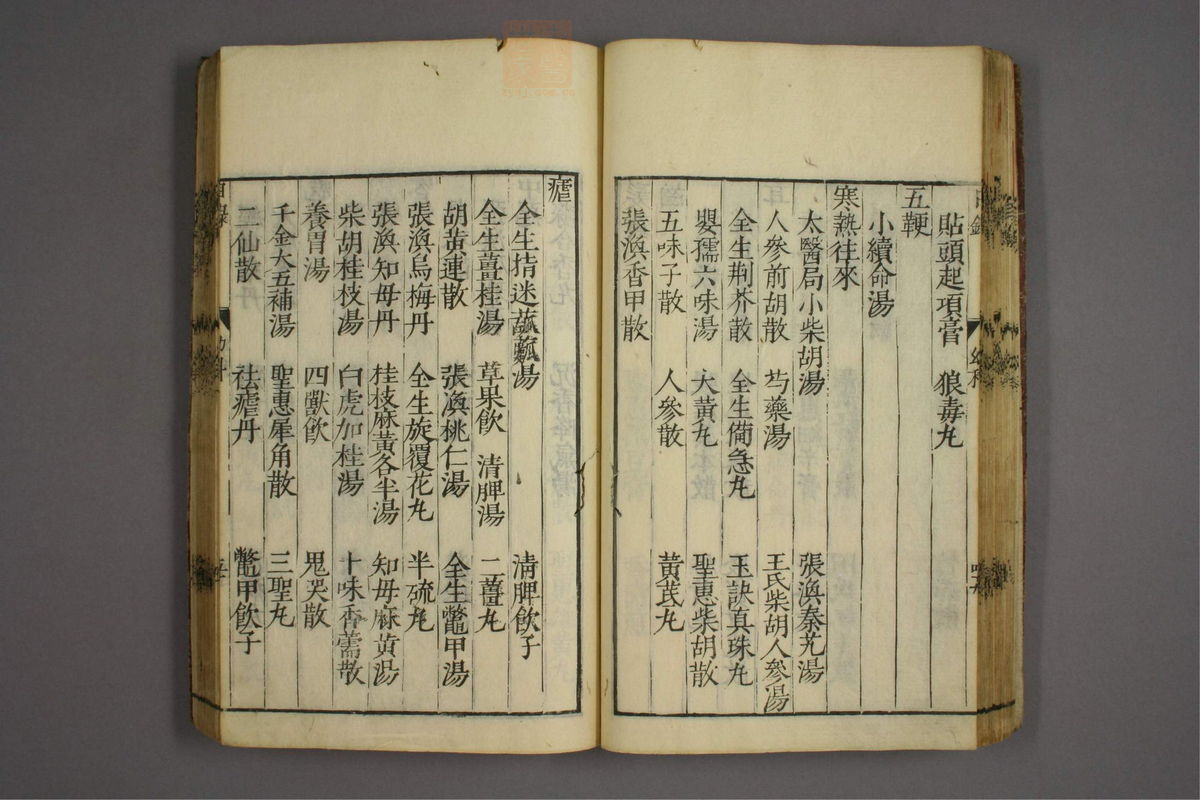 貼頭起項膏　狼毒丸
五鞕
小續命湯
寒熱往來
太醫局小柴胡湯　張渙秦艽湯
人參前胡散　芍藥湯　王氏柴胡人參湯
全生荆芥散　全生備急丸　玉訣真珠丸
嬰孺六味湯　大黃丸　聖惠柴胡散
五味子散　人參散　黃芪丸
張渙香甲散
瘧
全生指迷瓤湯　清脾飲子
全生薑桂湯　草果飲　清脾湯　二薑丸
胡黃連散　張渙桃仁湯　全生鼈甲湯
張渙烏梅丹　全生旋覆花丸　半硫丸
張渙知母丹　桂枝麻黃各半湯　知母麻黃湯
柴胡桂枝湯　白虎加桂湯　十味香薷散
養胃湯　四獸飲　鬼哭散
千金大五補湯　聖惠犀角散　三聖丸
二仙散　祛瘧丹　鱉甲飲子